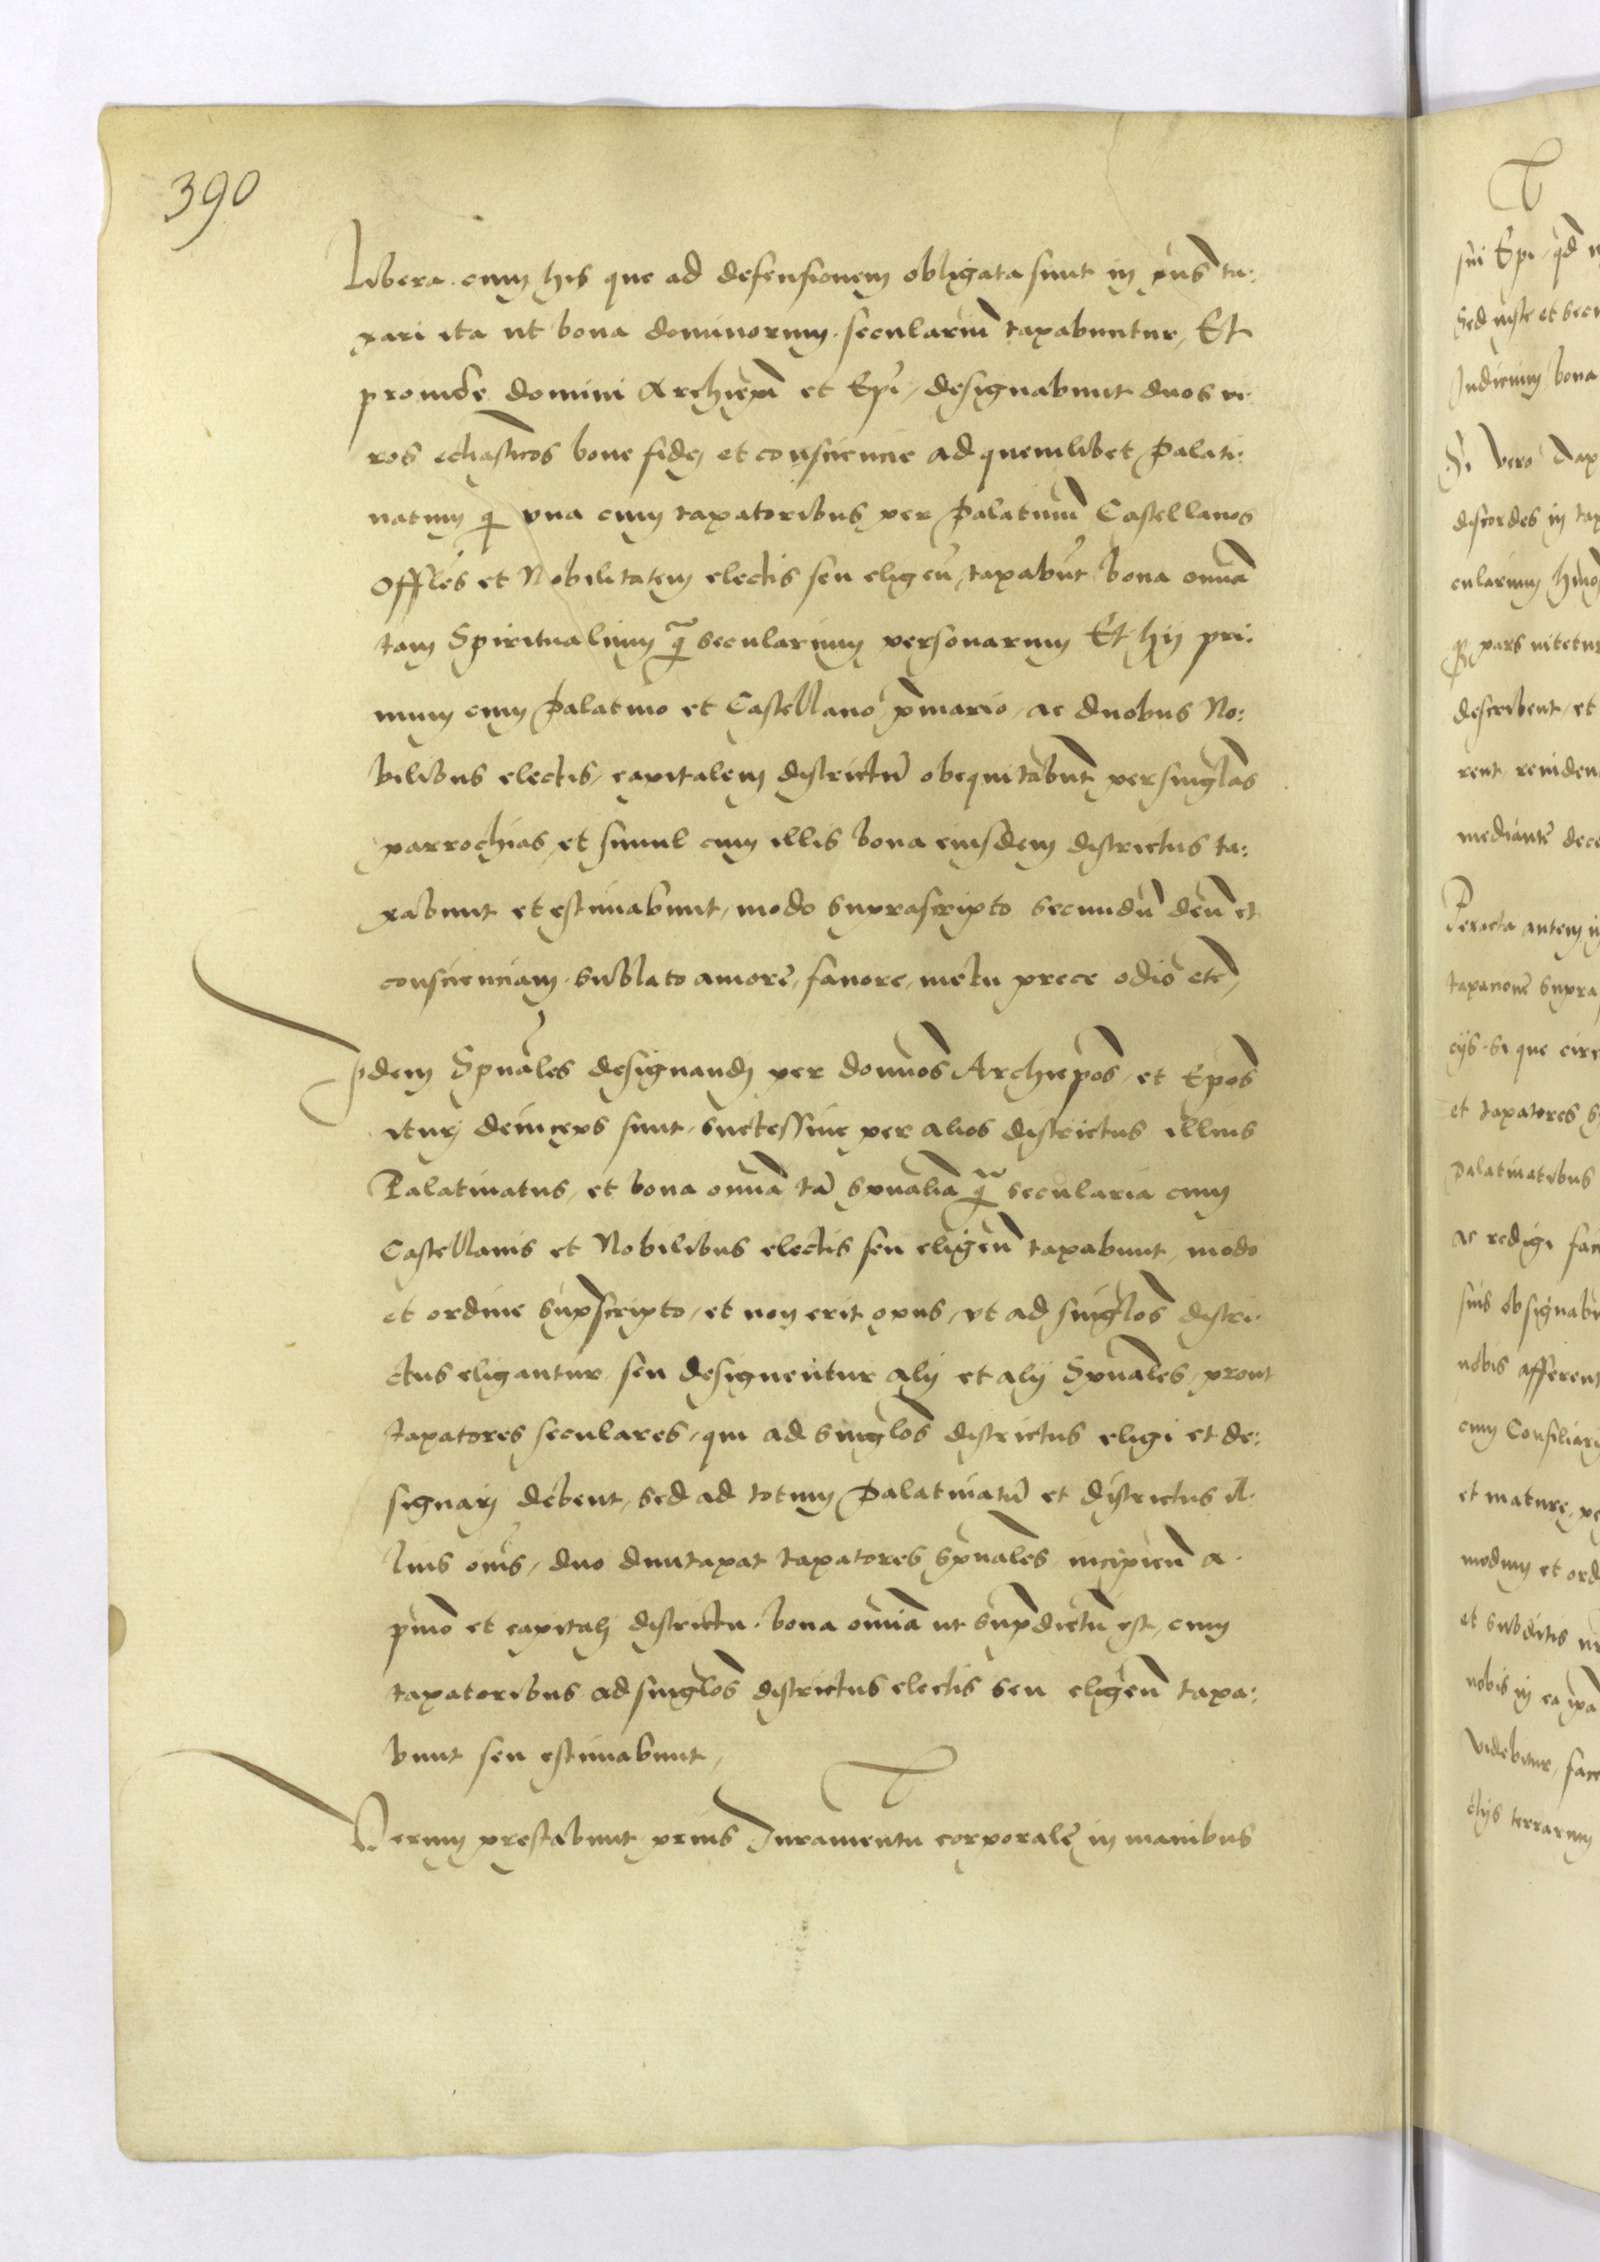 390
Libera cum his que ad defensionem obligata sunt in p̃ns ta:
xari ita ut bona dominorum seculariũ taxabuntur, Et
proinde domini Archiep̃i et Ep̃i, designabunt duos vi
ros ecl̃iasticos bone fidej et consciencie ad quemlibet Palati:
natum qͥ vna cum taxatoribus per Palatinũ Castellanos
Offl̃es et Nobilitatem electis seu eligeñ, taxabũt bona om̃ia
tam Spiritualium q̃ secularium personarum Et hij pri:
mum cum Palatino et Castellano p̃mario, ac duobus No:
bilibus electis, capitalem districtũ obequitabunt per singl̃as
parrochias, et simul cum illis bona eiusdem districtus ta:
xabunt et estimabunt, modo suprascripto secundũ deũ et
conscienciam, sublato amore, fauore, metu prece odio etc̃,
Idem Sp̃uales designandj per dominos Archiep̃os, et Ep̃os
iturj deinceps sunt, successiue per alios districtus illius
Palatinatus, et bona om̃ia tã sp̃ualia q̃ secularia cum
Castellanis et Nobilibus electis seu eligeñ taxabunt, modo
et ordine sup̃scripto, et non erit opus, vt ad singl̃os distri
ctus eligantur seu designentur alij et alij Sp̃uales, prout
taxatores seculares, qui ad singl̃os districtus eligi et de:
signarj debent, sed ad totum Palatinatũ et districtus il
lius om̃es, duo duntaxat taxatores sp̃uales incipieñ a
p̃mo et capitalj districtu, bona om̃ia ut sup̃dictũ est, cum
taxatoribus ad singl̃os districtus electis seu eligeñ taxa:
bunt seu estimabunt,
Verum prestabunt prius Iuramentũ corporalẽ in manibus
sui Ep̃i, qd̃
Sed iuste et
Iudicium bona
Si vero
discordes in
pars nitetur
describent, et
mediante
Peracta autem
et taxatores
Palatinatibus
ac redigi
suis
nobis afferent
cum
et mature,
modum et
et subditis
nobis in ea
videbitur,
terrarum